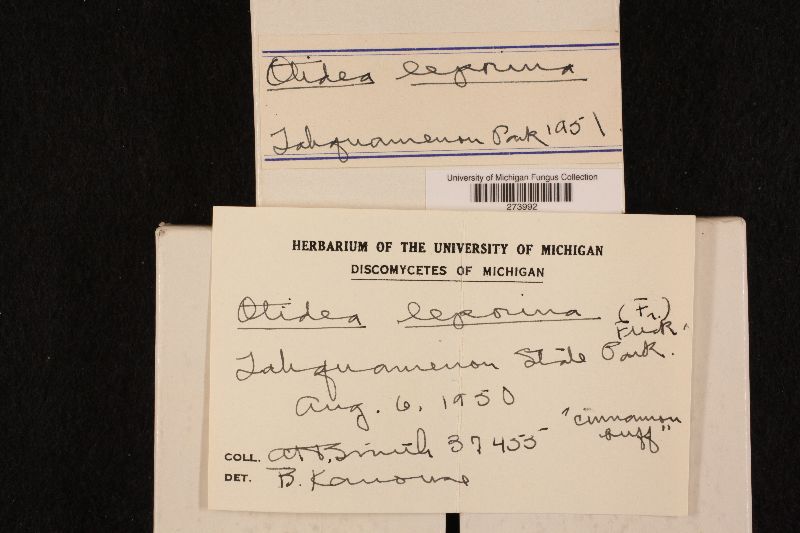 Otidea leporina
Tahquamenon Park 1951
University of Michigan Fungus Collection
273992
HERBARIUM OF THE UNIVERSITY OF MICHIGAN
DISCOMYCETES OF MICHIGAN
Otidea leporina (Fr.) Fuck.
Tahquamenon State Park.
Aug. 6, 1950
"cinnamon buff"
COLL. A.H. Smith 37455
DET. B. Kanouse